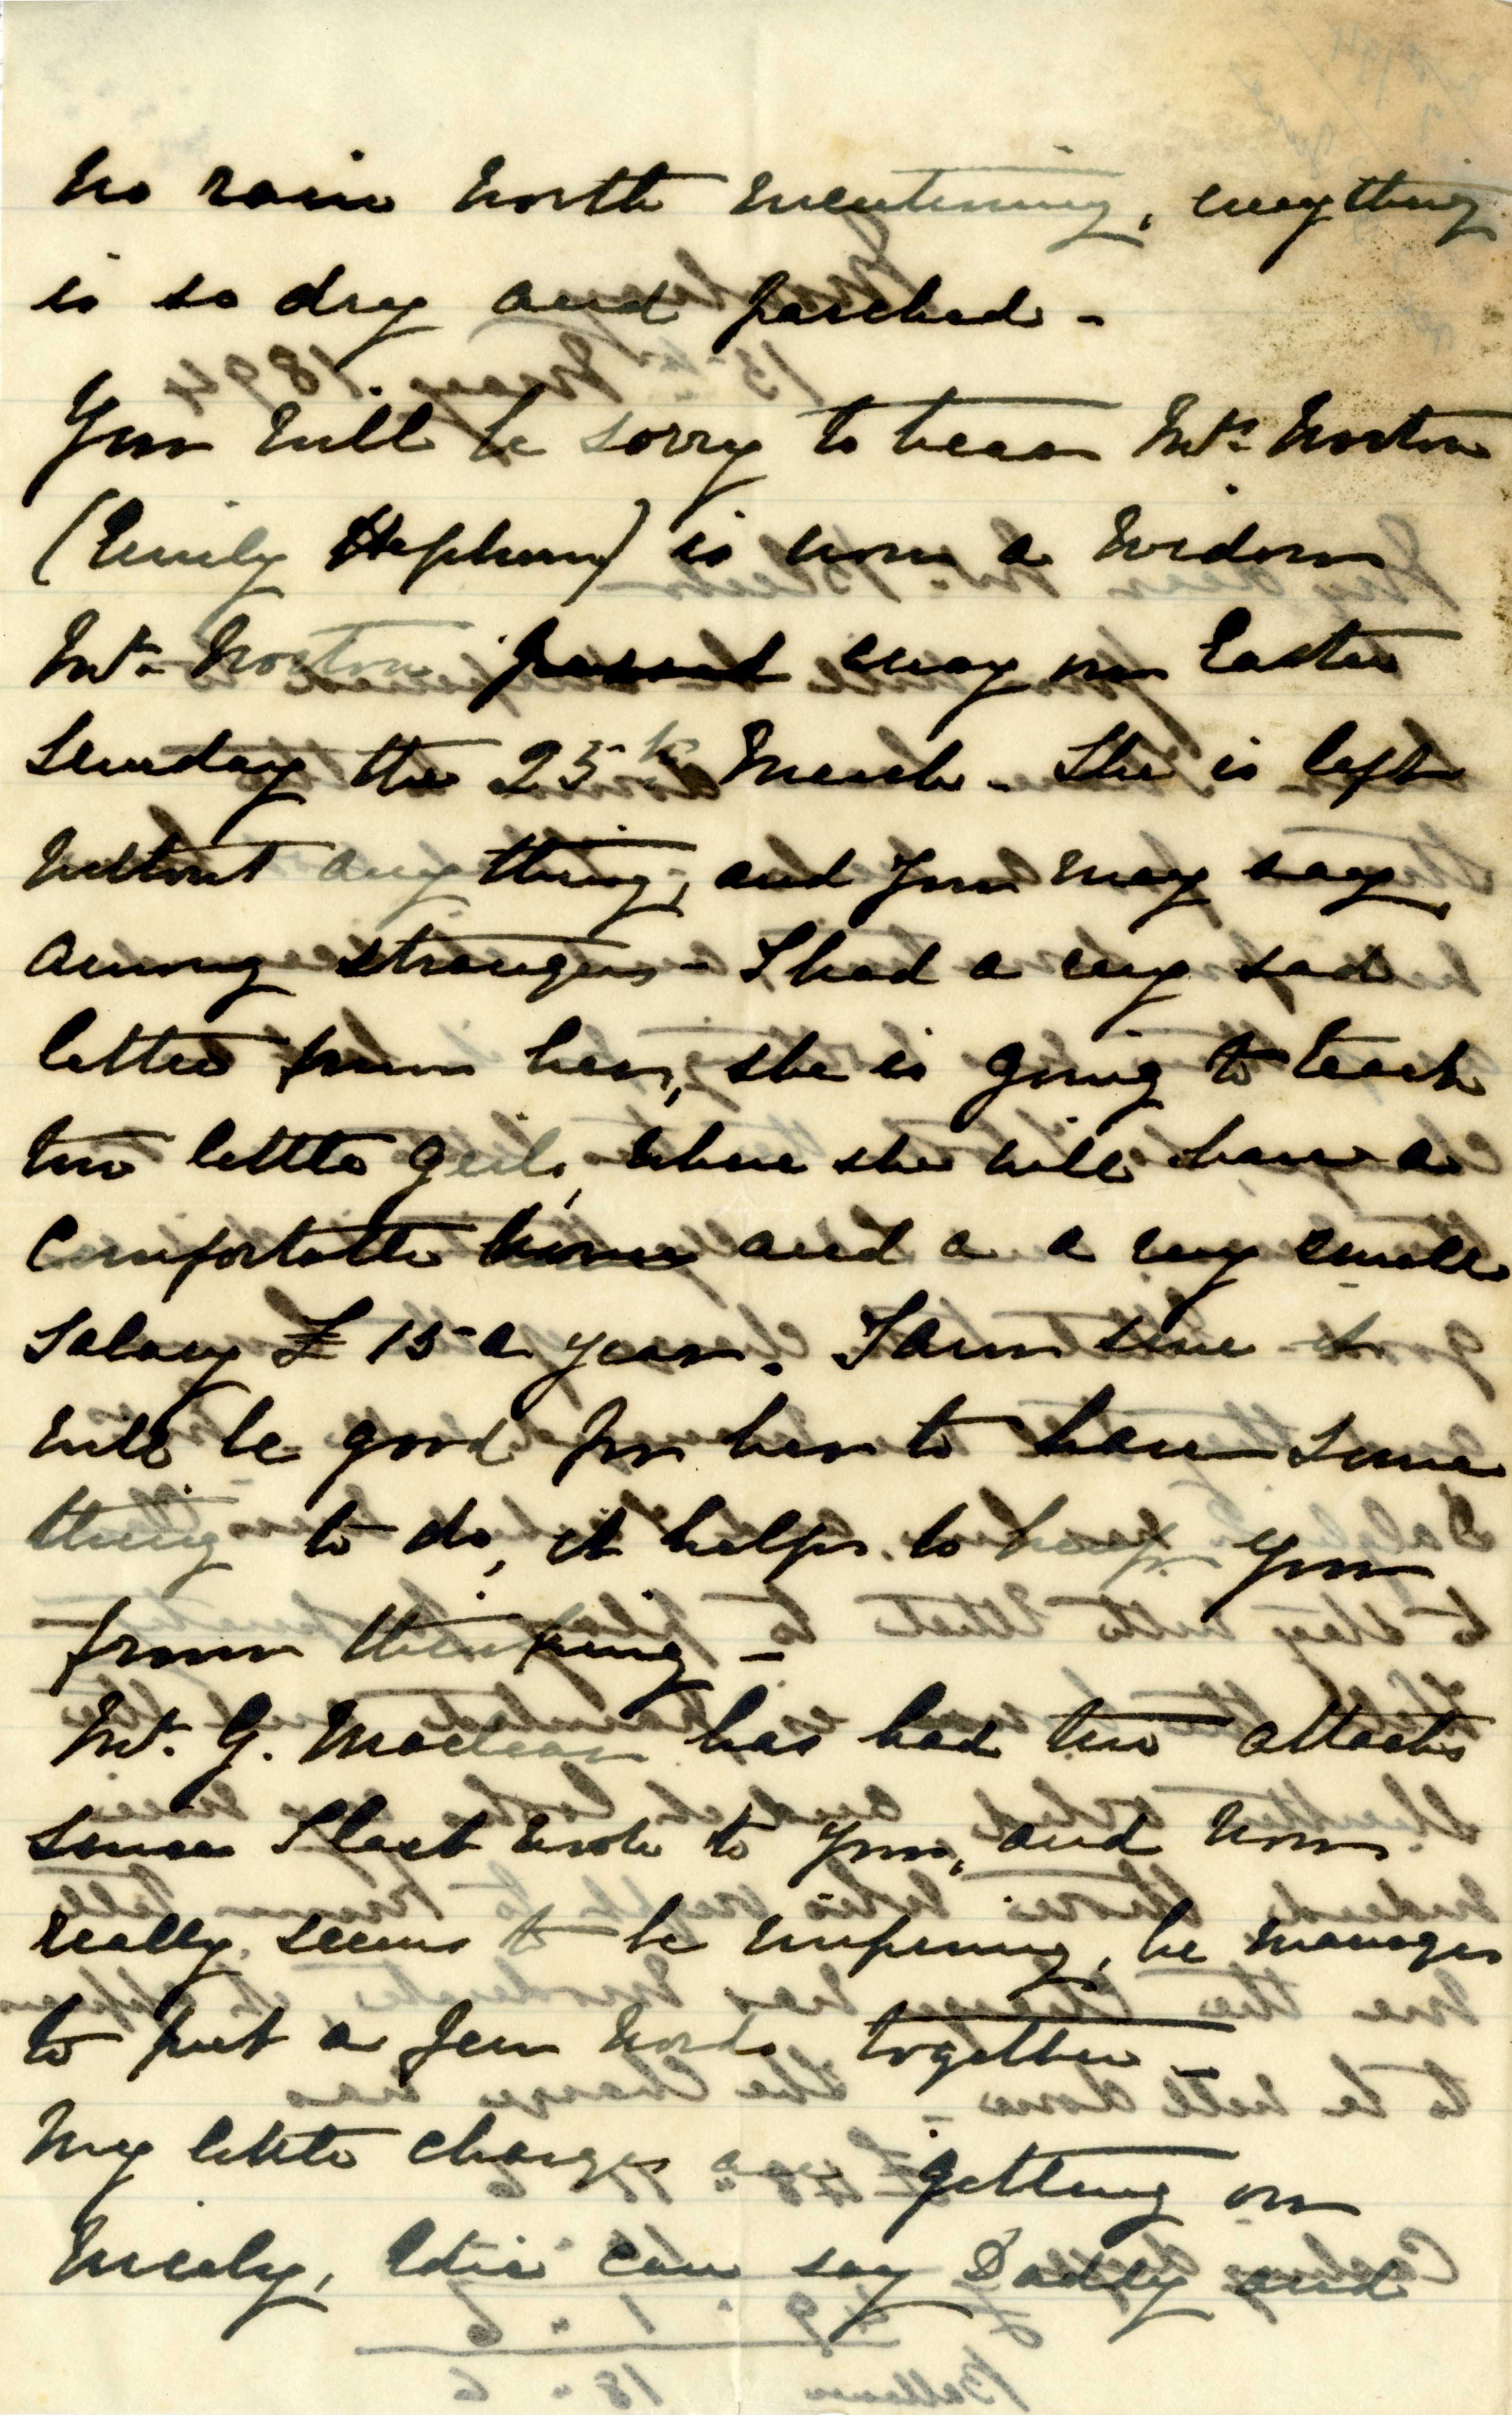 no rain worth mentioning, everything
is so dry and parched -
You will be sorry to hear Mrs. Norton
(Emily Hepburn) is now a widow
Mr. Norton passed away on Easter
Sunday the 25th March. She is left
without any thing, and you may say
among strangers - I had a very sad
letter from her, she is going to teach
two little girls, where she will have a
comfortable home and a a very small
salary £15 a year. I am sure it
will be good for her to have some
thing to do, it helps to keep you
from thinking -
Mr. G. Maclean has had two attacks
since I last wrote to you, and now
really seems to be improving, he manages
to put a few words together -
My little charges are getting on
nicely, Edie can say Daddy and